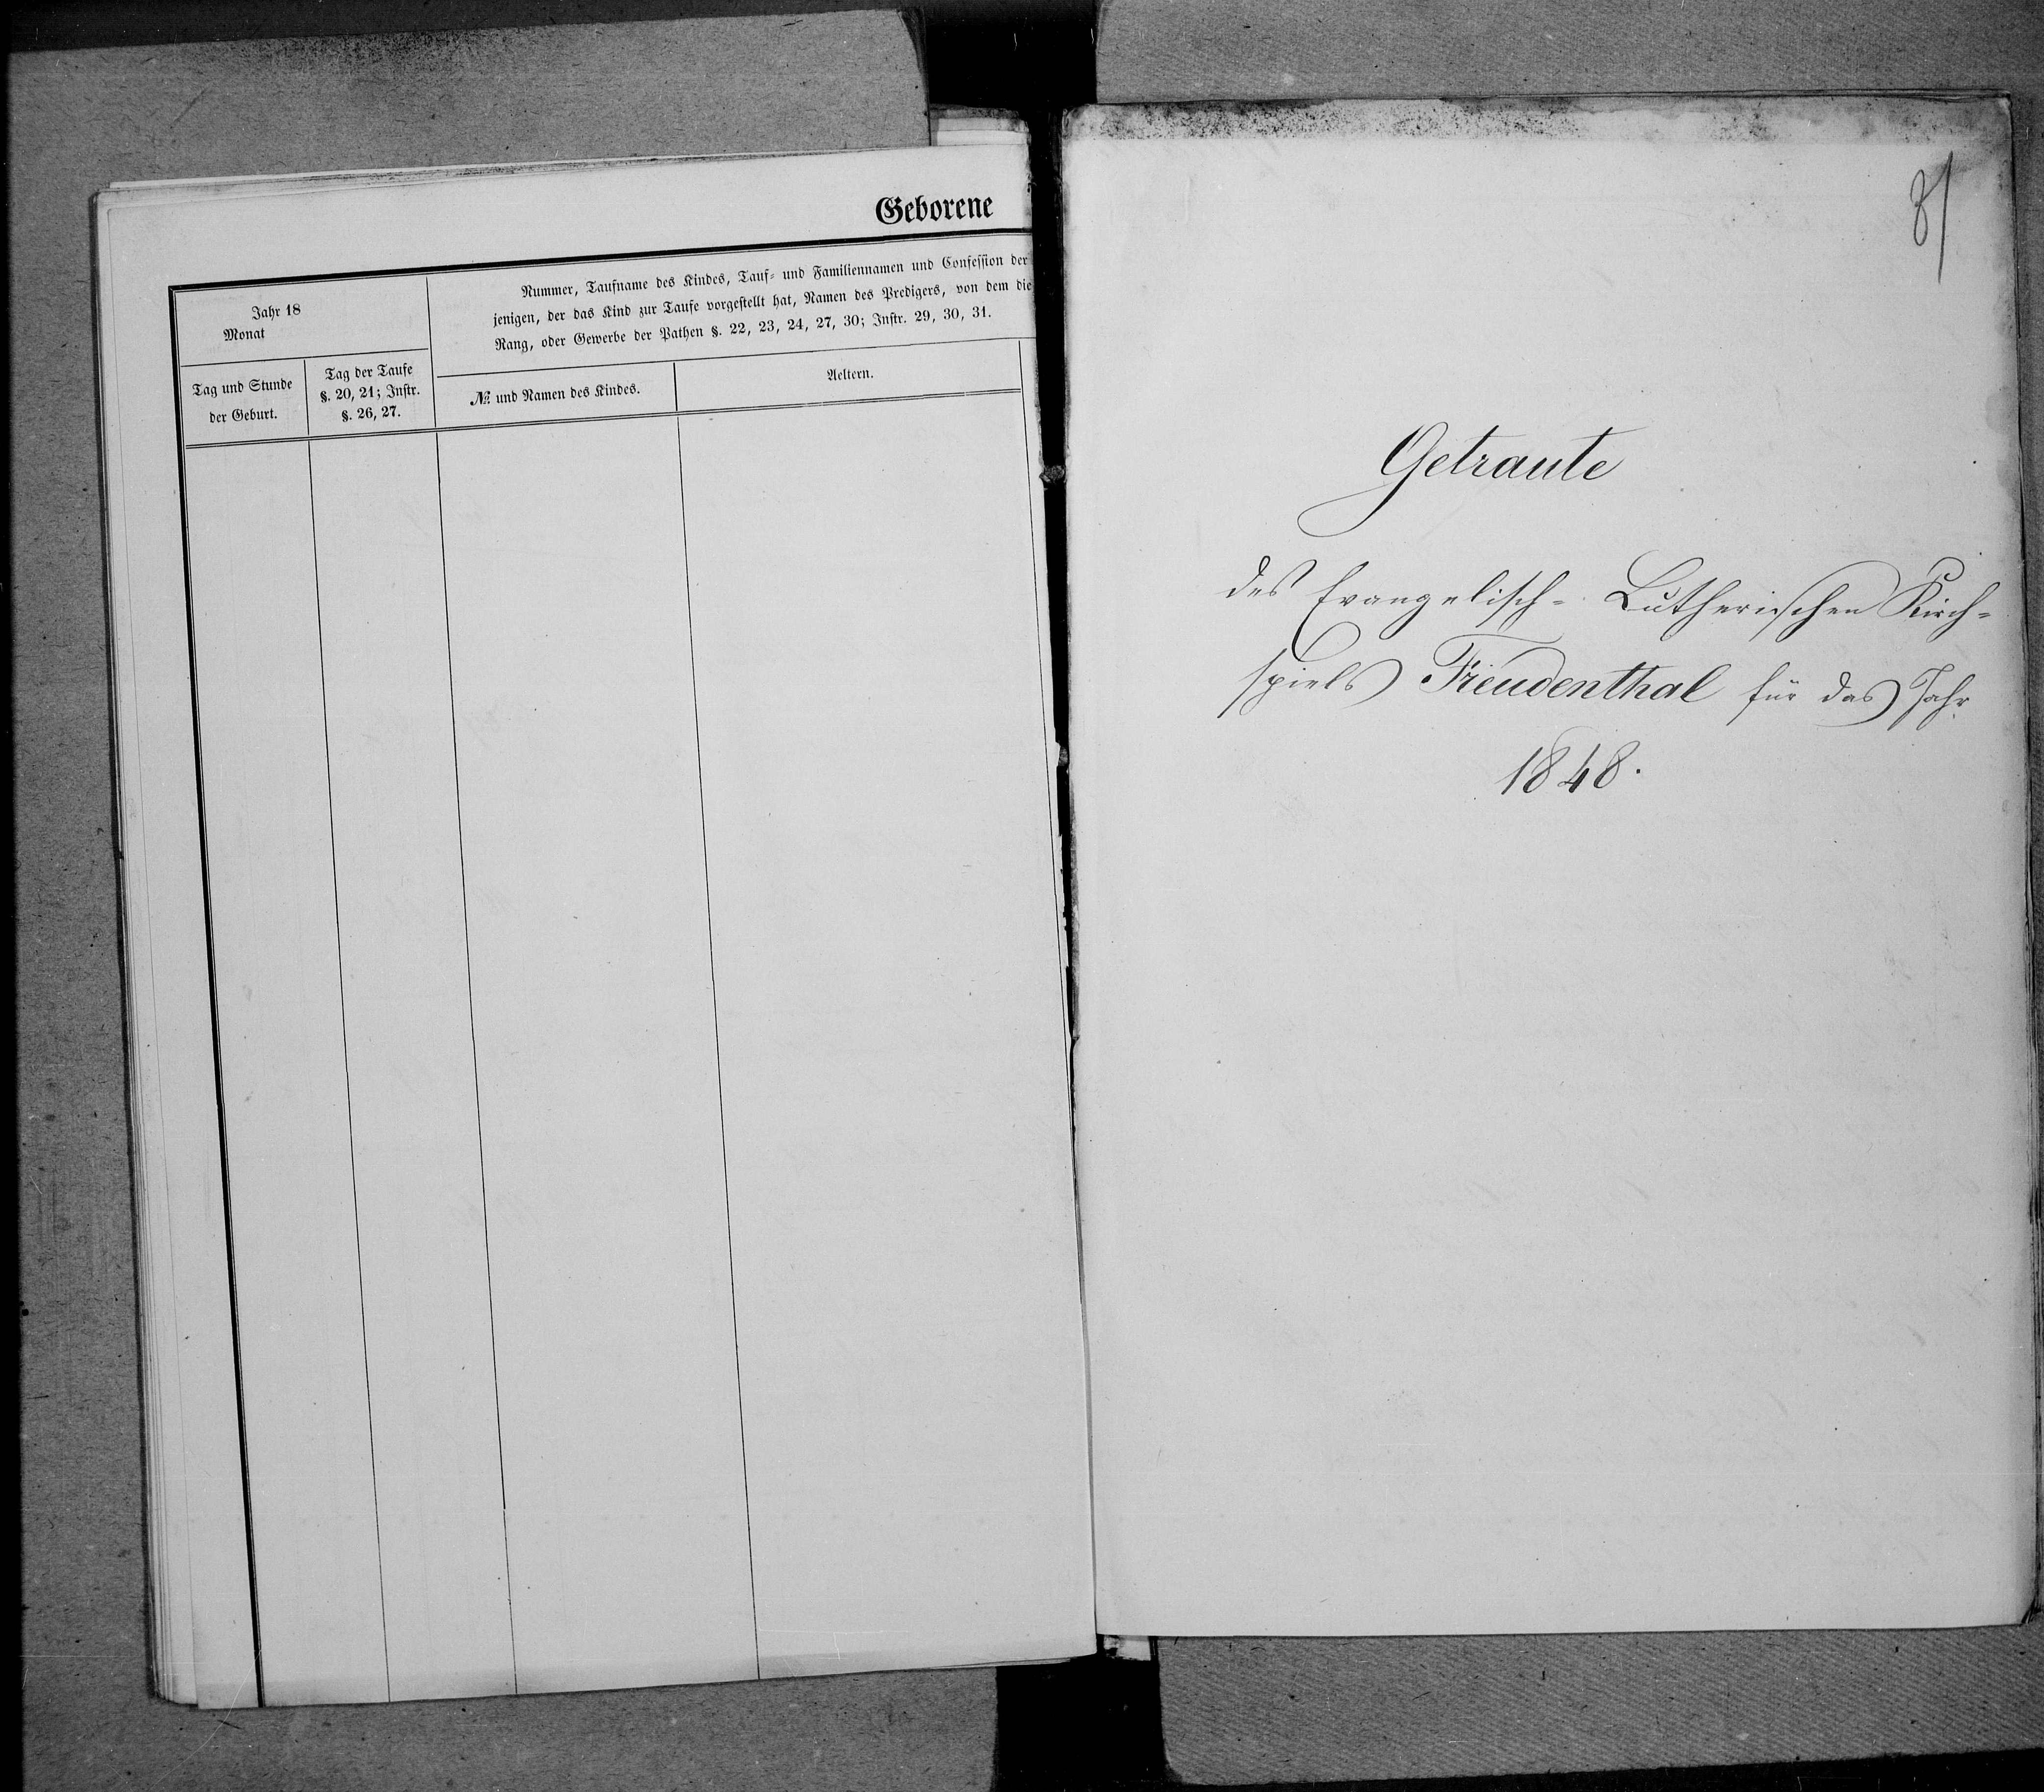 Geborene
Jahr 18
Monat
Nummer, Taufname des Kindes, Tauf- und Familiennamen und Confession der
jenigen, der das Kind zur Taufe vorgestellt hat, Namen des Predigers, von dem die
Rang, oder Gewerbe der Pathen §. 22, 23, 24, 27, 30; Instr. 29, 30, 31.
Tag und Stunde
der Geburt.
Tag der Taufe
§. 20, 21; Instr.
§. 26, 27.
№ und Namen des Kindes.
Aeltern.
81
Getraute
des Evangelisch-Lutherischen Kirch-
spiels Freudenthal für das Jahr
1848.